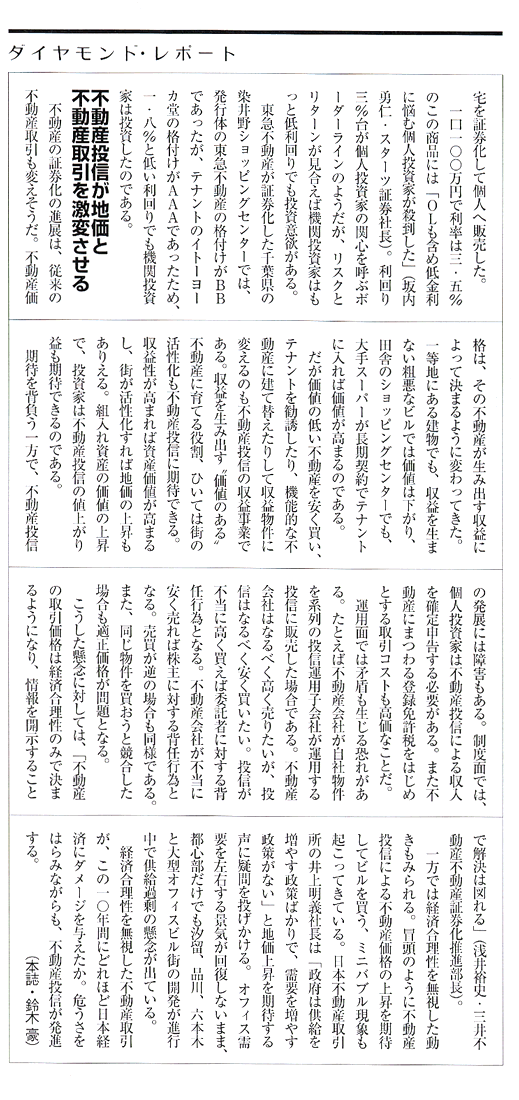 ダイヤモンド・レポート
宅を証券化して個人へ販売した。
　一口一〇〇万円で利率は三・五％
のこの商品には「ＯＬも含め低金利
に悩む個人投資家が殺到した」（坂内
勇仁・スターツ証券社長）。利回り
三％台が個人投資家の関心を呼ぶボ
ーダーラインのようだが、リスクと
リターンが見合えば機関投資家はも
っと低利回りでも投資意欲がある。
　東急不動産が証券化した千葉県の
染井野ショッピングセンターでは、
発行体の東急不動産の格付けがＢＢ
であったが、テナントのイトーヨー
カ堂の格付けがＡＡＡであったため、
一・八％と低い利回りでも機関投資
家は投資したのである。
不動産投信が地価と
不動産取引を激変させる
　不動産の証券化の進展は、従来の
不動産取引も変えそうだ。不動産価
格は、その不動産が生み出す収益に
よって決まるように変わってきた。
一等地にある建物でも、収益を生ま
ない粗悪なビルでは価値は下がり、
田舎のショッピングセンターでも、
大手スーパーが長期契約でテナント
に入れば価値が高まるのである。
　だが価値の低い不動産を安く買い、
テナントを勧誘したり、機能的な不
動産に建て替えたりして収益物件に
変えるのも不動産投信の収益事業で
ある。収益を生み出す〝価値のある〟
不動産に育てる役割、ひいては街の
活性化も不動産投信に期待できる。
収益性が高まれば資産価値が高まる
し、街が活性化すれば地価の上昇も
ありえる。組入れ資産の価値の上昇
で、投資家は不動産投信の値上がり
益も期待できるのである。
　期待を背負う一方で、不動産投信
の発展には障害もある。制度面では、
個人投資家は不動産投信による収入
を確定申告する必要がある。また不
動産にまつわる登録免許税をはじめ
とする取引コストも高価なことだ。
　運用面では矛盾も生じる恐れがあ
る。たとえば不動産会社が自社物件
を系列の投信運用子会社が運用する
投信に販売した場合である。不動産
会社はなるべく高く売りたいが、投
信はなるべく安く買いたい。投信が
不当に高く買えば委託者に対する背
任行為となる。不動産会社が不当に
安く売れば株主に対する背任行為と
なる。売買が逆の場合も同様である。
また、同じ物件を買おうと競合した
場合も適正価格が問題となる。
　こうした懸念に対しては、「不動産
の取引価格は経済合理性のみで決ま
るようになり、情報を開示すること
で解決は図れる」（浅井裕史・三井不
動産不動産証券化推進部長）。
　一方では経済合理性を無視した動
きもみられる。冒頭のように不動産
投信による不動産価格の上昇を期待
してビルを買う、ミニバブル現象も
起こってきている。日本不動産取引
所の井上明義社長は「政府は供給を
増やす政策ばかりで、需要を増やす
政策がない」と地価上昇を期待する
声に疑問を投げかける。オフィス需
要を左右する景気が回復しないまま、
都心部だけでも汐留、品川、六本木
と大型オフィスビル街の開発が進行
中で供給過剰の懸念が出ている。
　経済合理性を無視した不動産取引
が、この一〇年間にどれほど日本経
済にダメージを与えたか。危うさを
はらみながらも、不動産投信が発進
する。　　　　　（本誌・鈴木　豪）